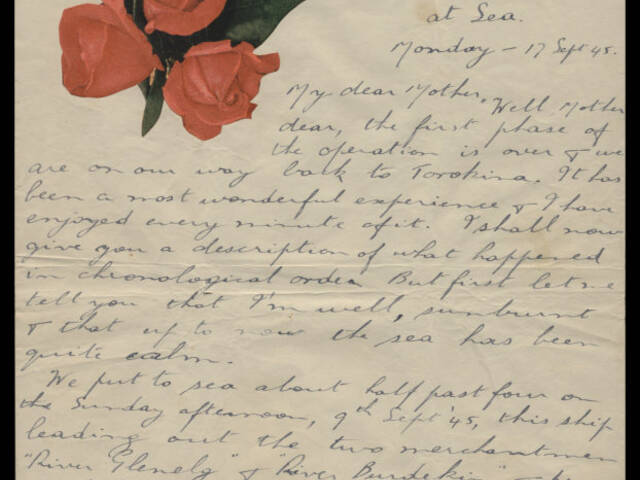 at Sea.
Monday - 17 Sept 45.
My dear Mother,
Well Mother
dear, the first phase of
the operation is over & we
are on our way back to Torokina. It has
been a most wonderful experience & I have
enjoyed every minute of it. I shall now
give you a description of what happened
in chronological order. But first let me
tell you that I'm well, sunburnt
& that up to now the sea has been
quite calm.
We put to sea about half past four on
the Sunday afternoon, 9th Sept '45, this ship
leading out the two merchantmen
"River Glenelg" & "River Burdekin"